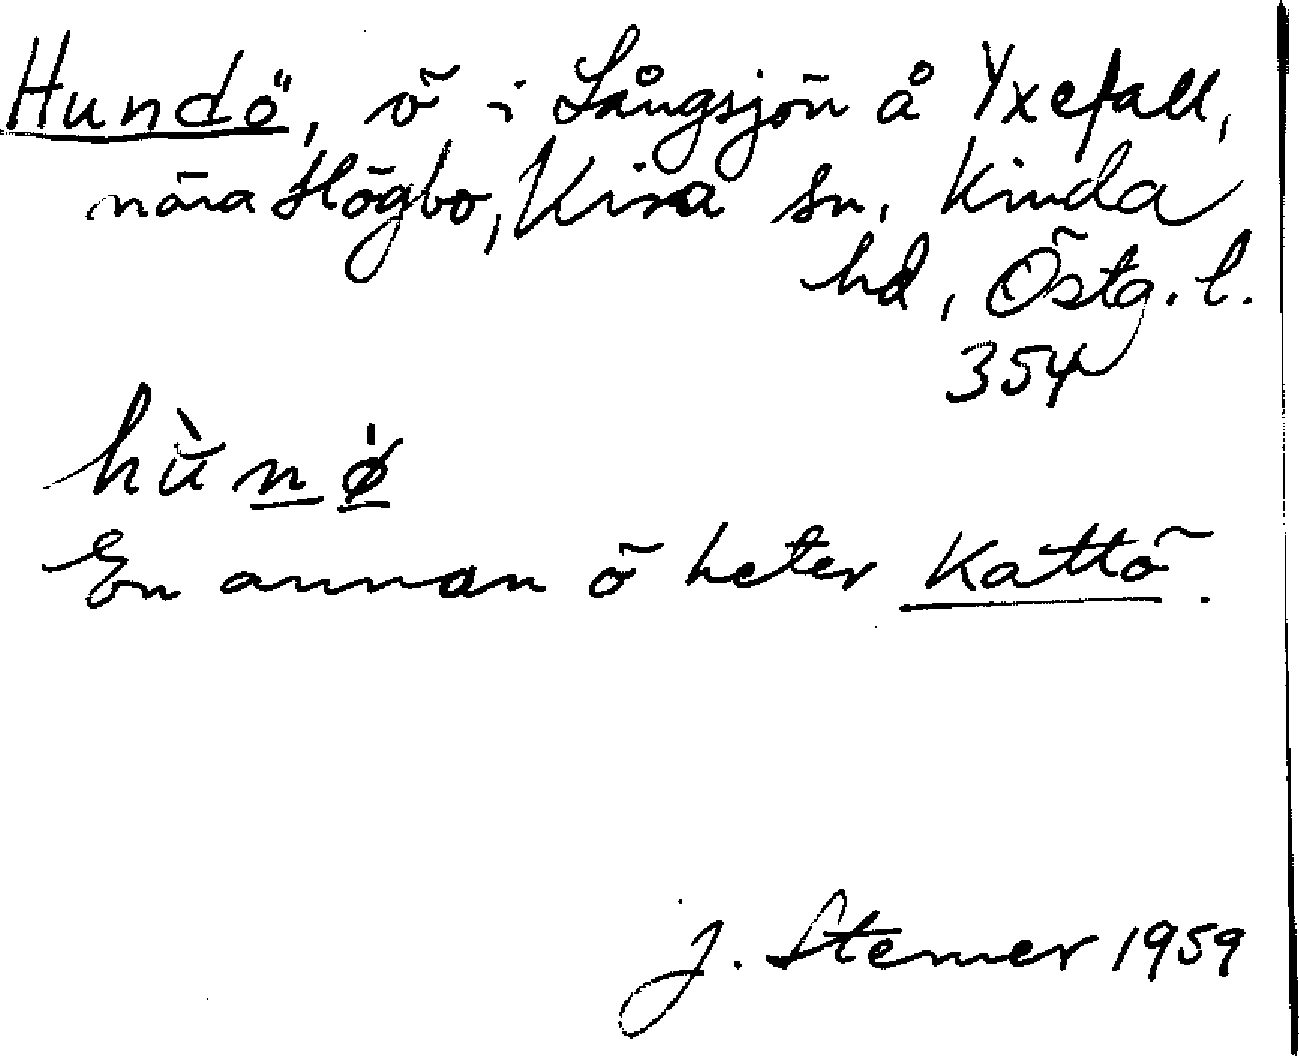 Hundö, ö i Långsjön å Yxefall,
nära Högbo, Kisa sn, Kinda
hd, Östg. l.
354
hùnø̀
En annan ö heter Kattö.
J. Sterner 1959